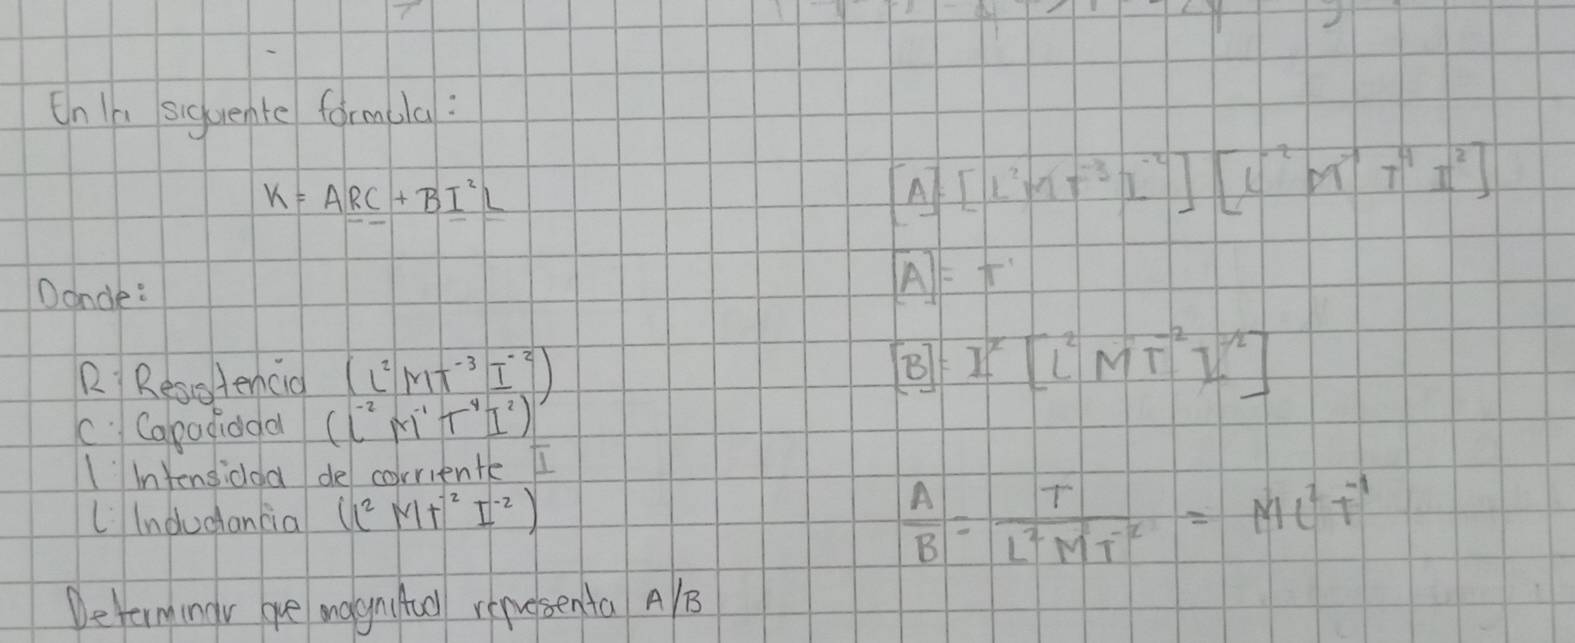 En la siguiente fórmula:
K = ARC + BI²L
Donde:
R: Resistencia (L²MT⁻³I⁻²)
C: Capacidad (L⁻²M⁻¹T⁴I²)
I: Intensidad de corriente I
L: Inductancia (L²MT⁻²I⁻²)
Determinar que magnitud representa A/B
[A] = [L²MT⁻³I⁻²] [L⁻²M⁻¹T⁴I²]
[A] = T¹
[B] = I² [L²MT⁻²I⁻²]
A/B = T/L²MT⁻² = ML²T⁻¹